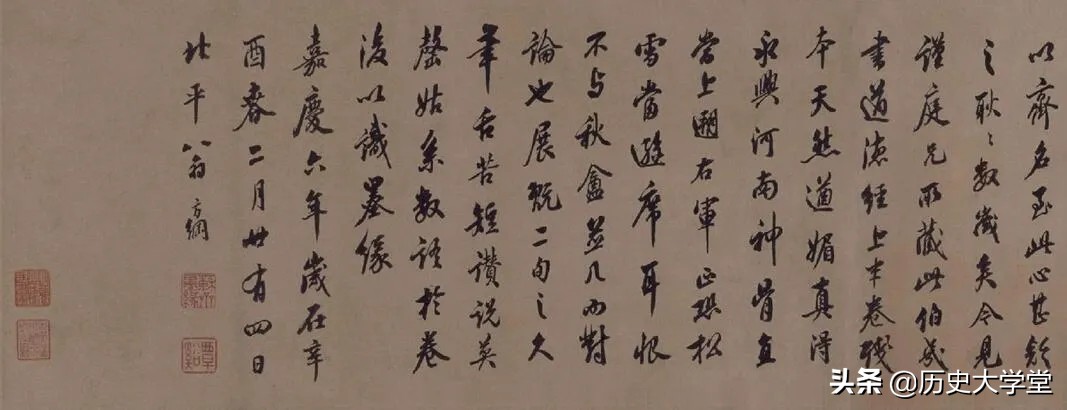 以齊名至此心甚
之耿〻數歲矣今見
謹庭兄所藏此伯幾
書道德經上半卷機
本天然遒媚真得
永興河南神骨直
當上遡右軍正恐松
雪當避席耳恨
不与秋盦並几而對
論也展玩二旬之久
筆舌苦短讚説莫
罄姑系數語於卷
後以識墨緣
嘉慶六年歲在辛
酉春二月廿有四日
北平翁方綱
头条 @历史大学堂